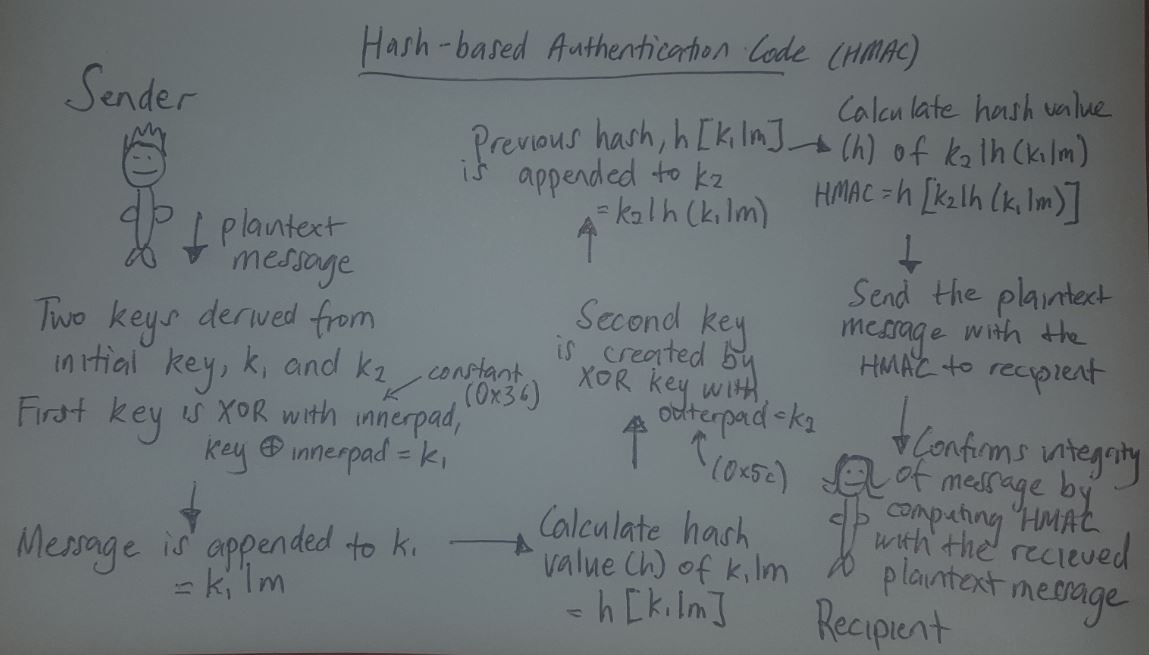 Hash-based Authentication Code (HMAC)
Sender
plaintext
message
Two keys derived from
initial key, k₁ and k₂
constant
(0x36)
First key is XOR with innerpad,
key ⊕ innerpad = k₁
Message is appended to k₁
= k₁|m
Calculate hash
value (h) of k₁|m
= h [k₁|m]
Second key
is created by
XOR key with
outerpad = k₂
(0x5c)
Previous hash, h [k₁|m]
is appended to k₂
= k₂|h (k₁|m)
Calculate hash value
(h) of k₂|h (k₁|m)
HMAC = h [k₂|h (k₁|m)]
Send the plaintext
message with the
HMAC to recipient
Confirms integrity
of message by
computing HMAC
with the recieved
plaintext message
Recipient